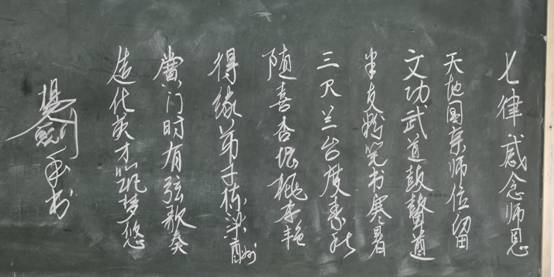 七律 感念师恩
天地国亲师位留
文功武道鼓声遒
半支粉笔书寒暑
三尺兰台度春秋
随喜杏坛桃李艳
得缘弟子栋梁酬
黉门时有弦歌奏
造化英才凯梦悠